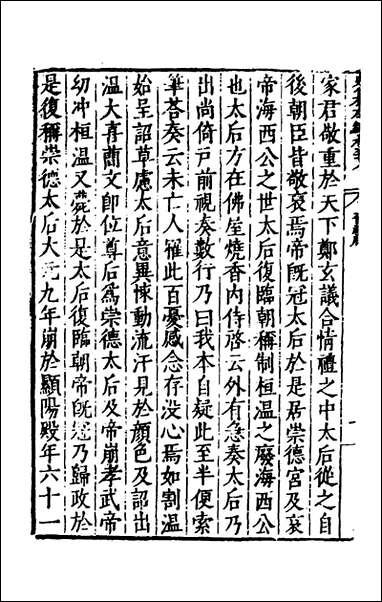 家君敬重於天下鄭玄議合情禮之中太后從之自
後朝臣皆敬哀焉帝旣冠太后於是居崇德宮及哀
帝海西公之世太后復臨朝稱制桓温之廢海西公
也太后方在佛屋燒香内侍啓云外有急奏太后乃
出尚倚戸前視奏數行乃曰我本自疑此至半便索
筆荅奏云未亡人罹此百憂感念存没心焉如割温
始呈詔草慮太后意異悚動流汗見於顔色及詔出
温大喜蕳文即位尊后爲崇德太后及帝崩孝武帝
幼冲桓温又薨於是太后復臨朝帝旣冠乃歸政於
是復稱崇德太后大元九年崩於顯陽殿年六十一